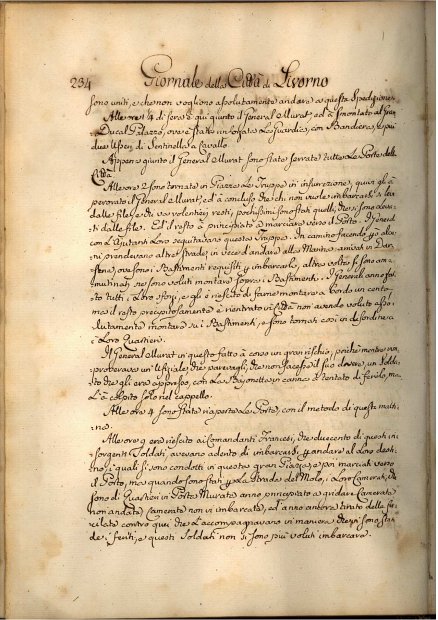 234 Giornale della Città di Livorno
sono uniti, e che non vogliono assolutamente andare a questa Spedizione.
Alle ore 1/4 di sera è qui giunto il General Murat ed à smontato al Gran
Ducal Palazzo, ove è stata La Guardia, con Bandiera, e poi
due Usseri di Sentinella a Cavallo
Appena giunto il General Murat sono state serrate tutte Le Porte della
Città.
Alle ore 2 sono tornate in Piazza Le Truppe in insurrezione, quivi gli à
perorato il General Murat, ed à concluso che chi non vuole imbarcarsi si
dalle file, e chi va volentieri resti, pochissimi sono stati quelli, che si sono
ti dalle file. Ed il resto à principiato a marciare verso il Porto. I Generali
con L'Ajutanti Loro seguitavano questa Truppa. In cammino facendo
ni prendevano altre strade, in vece d'andare alla Marina, arrivati in
sena, ove sono i Bastimenti requisiti p imbarcarli, altra volta si sono am=
mutinati, ne sono voluti montare sopra i Bastimenti. I Generali anno fat=
to tutti i Loro sforzi, e gli è riescito di farne montare a bordo un centi
ma il resto precipitosamente è rientrato in Città non avendo voluto asso=
lutamente montare su i Bastimenti, e sono tornati così in disordine a
i Loro Quartieri.
Il General Murat in questo fatto à corso un gran rischio, poichè mentre
proverava un Uffiziale, che pareva gli, che non facesse il suo dovere, un Solda=
to che gli era appresso, con La Bajonetta in canna à tentato di ferirlo, ma
L'à colpito solo nel cappello.
Alle ore 4 sono state riaperte Le Porte, con il metodo di questa matti=
na.
Alle ore 9 era riescito ai Comandanti Francesi, che duecento di questi in=
sorgenti Soldati, avevano aderito di imbarcarsi, p andare al Loro desti=
no, i quali si sono condotti in questa gran Piazza, e poi marciati verso
il Porto, ma quando sono stati p La Strada del Molo, i Loro Camerati, che
sono di Quartieri in Porta Murata anno principiato a gridare Camerata
non andate, Camerata non vi imbarcate, ed anno ancora tirato delle fu=
cilate contro qui che L'accompagnavano in maniera che vi sono sta=
de' feriti, e questi Soldati non si sono più voluti imbarcare.